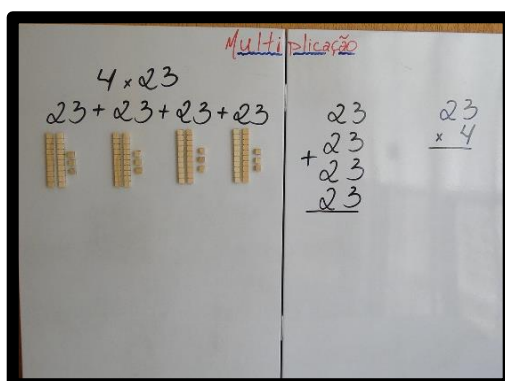 Multiplicação
4 × 23
23 + 23 + 23 + 23
23
23
+ 23
23
23
× 4